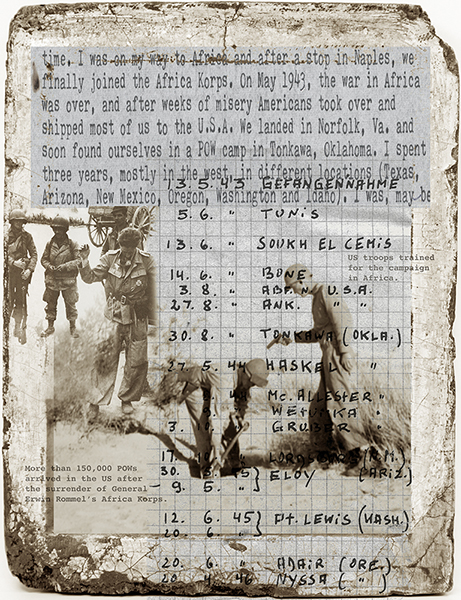 time. I was on my way to Africa and after a stop in Naples, we
finally joined the Africa Korps. On May 1943, the war in Africa
was over, and after weeks of misery Americans took over and
shipped most of us to the U.S.A. We landed in Norfolk, Va. and
soon found ourselves in a POW camp in Tonkawa, Oklahoma. I spent
three years, mostly in the west, in different locations (Texas,
Arizona, New Mexico, Oregon, Washington and Idaho). I was, may be
13.5.43 GEFANGENNAHME
5.6. " TUNIS
13.6. " SOUKH EL CEMIS
US troops trained
for the campaign
in Africa.
14.6. " BONE
3.8. " ABF. N U.S.A.
27.8. " ANK. " "
30.8. " TONKAWA (OKLA.)
27.5.44 HASKEL "
Mc. ALLESTER "
WETUMKA "
3. GRUBER "
17. LORDSBURG (N.M.)
30. 45 } ELOY (ARIZ.)
9. 5. "
More than 150,000 POWs
arrived in the US after
the surrender of General
Erwin Rommel's Africa Korps.
12. 6. 45 } Ft. LEWIS (WASH.)
20 6 "
20. 6. " ADAIR (ORE.)
20 4 46 NYSSA ( " )